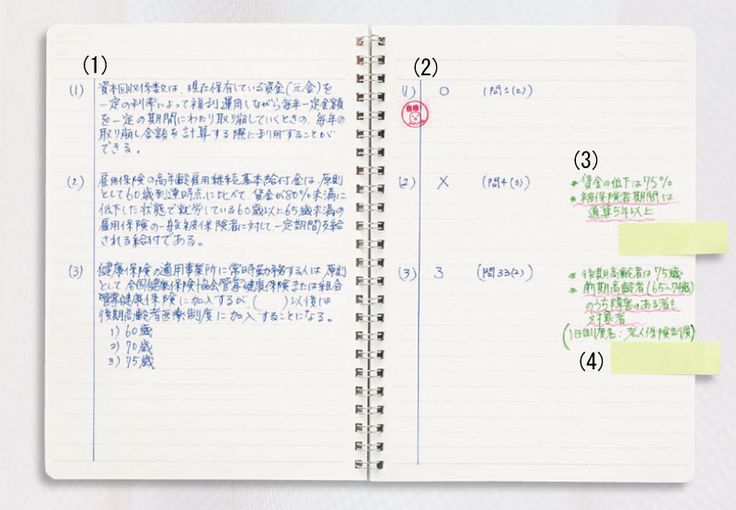 (1)
(1) 資本回収係数は、現在保有している資金(元金)を
一定の利率によって複利運用しながら毎年一定金額
を一定の期間にわたり取り崩していくときの、毎年の
取り崩し金額を計算する際に利用することが
できる。
(2) 雇用保険の高年齢雇用継続基本給付金は、原則
として60歳到達時点に比べて、賃金が80%未満に
低下した状態で就労している60歳以上65歳未満の
雇用保険の一般被保険者に対して一定期間支給
される給付である。
(3) 健康保険の適用事業所に常時勤務する人は、原則
として、全国健康保険協会管掌健康保険または組合
管掌健康保険に加入するが、( )以後は
後期高齢者医療制度に加入することになる。
1) 60歳
2) 70歳
3) 75歳
(2)
(1) ○ (問1(2))
合格!
(2) × (問4(3))
(3) 3 (問33(2))
(3)
* 賃金の低下は75%
* 被保険者期間は
通算5年以上
* 後期高齢者は75歳
* 前期高齢者(65~74歳)
のうち障害のある者も
対象者
(旧制度名:老人保険制度)
(4)